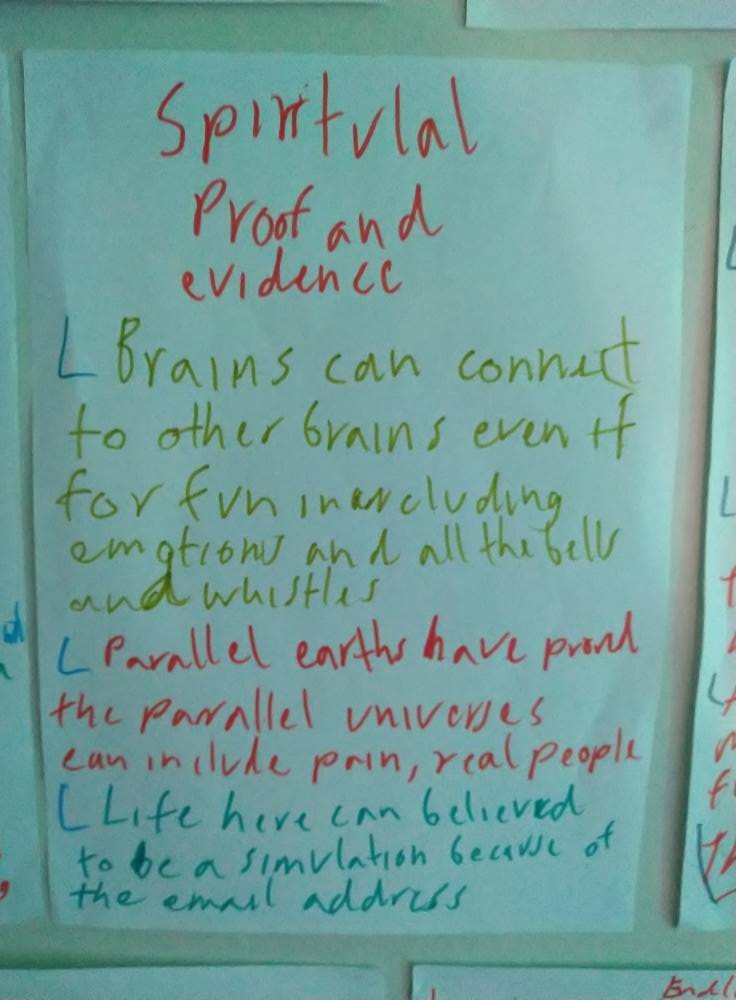 Spiritvlal
Proof and
evidence
Brains can connect
to other brains even if
for fvn including
emotions and all the bells
and whistles
Parallel earths have proved
the parallel vniverses
can inclvde pain, real people
Life here can believed
to be a simvlation because of
the email address